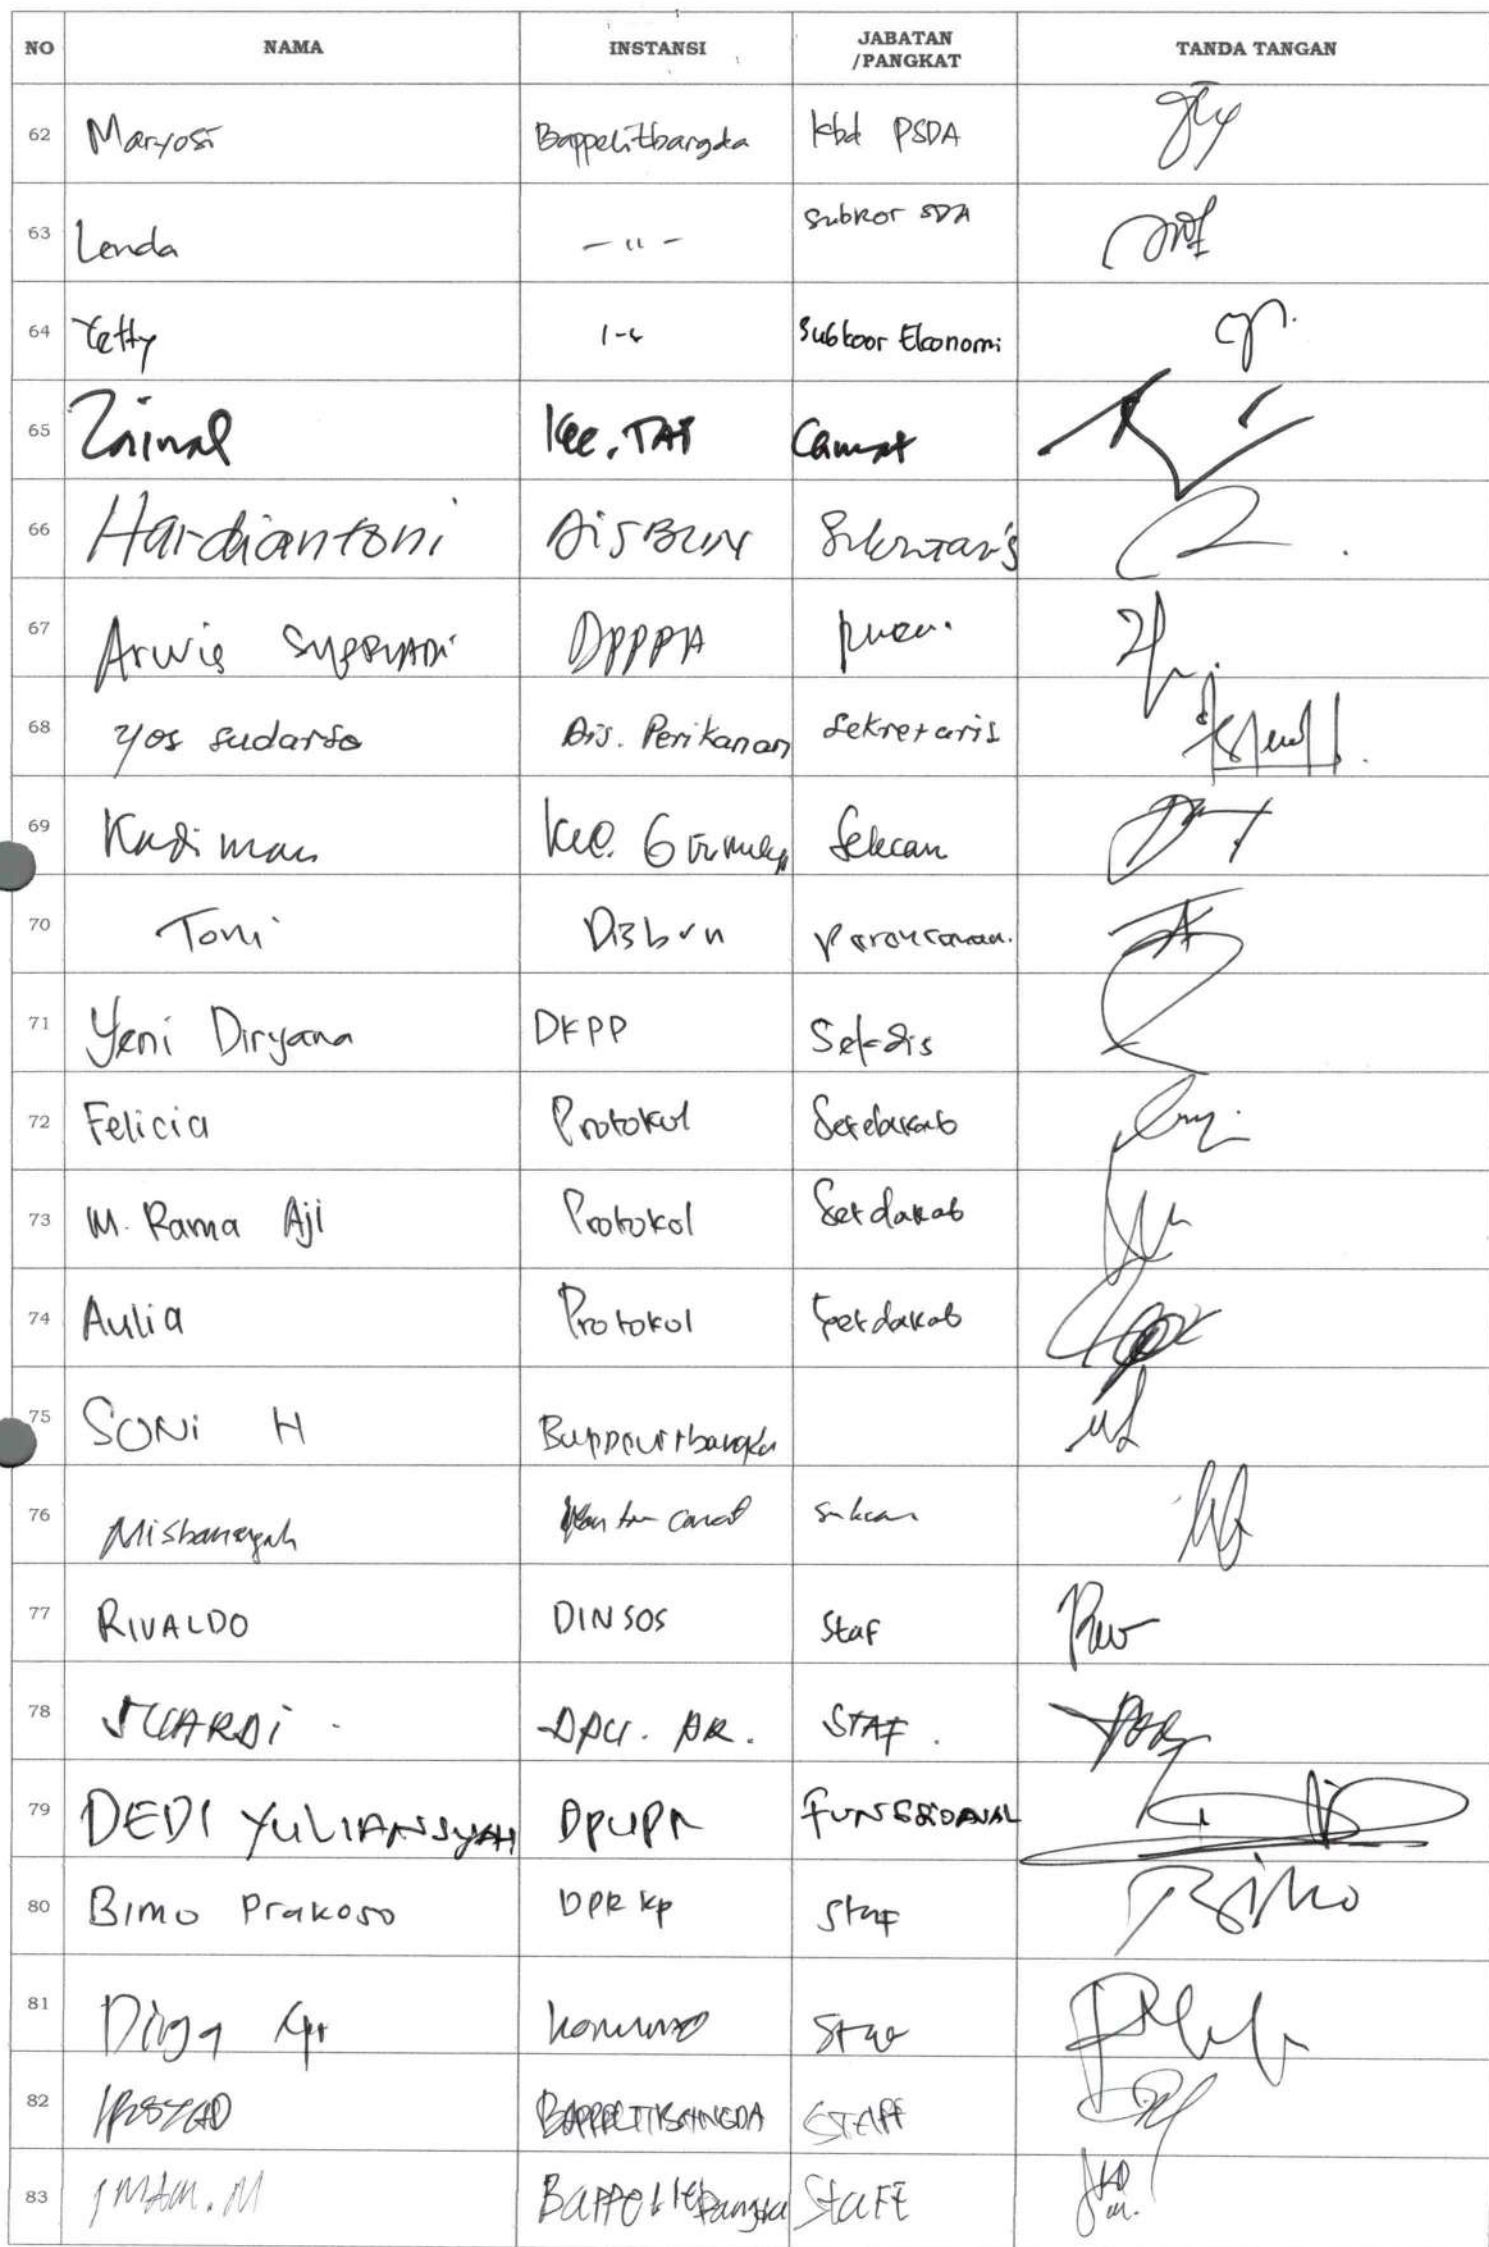 NO NAMA INSTANSI JABATAN /PANGKAT TANDA TANGAN
62 Maryosi Bappelitbangda kbd PSDA
63 Lenda — " — Subkor SDA
64 Yetty Subkoor Ekonomi
65 Zainal Kec. TAI Camat
66 Hardiantoni DISBUN Sekretaris
67 Arwis SUPRIYADI DPPPA
68 Yos sudarso Dis. Perikanan Sekretaris
69 Kadiman Kec. Sekcam
70 Toni Disbun
71 Yeni Diryana DKPP Sekdis
72 Felicia Protokol
73 M. Rama Aji Protokol Setdakab
74 Aulia Protokol Setdakab
75 SONI H
76 Misbansyah
77 RIVALDO DINSOS Staf
78 SUARDI DPU. PR. STAF.
79 DEDI YULIANSYAH DPUPR FUNGSIONAL
80 Bimo Prakoso DPR KP Staf
81 Staf
82 BAPPELITBANGDA STAFF
83 IMAM. M Bappelitbangda